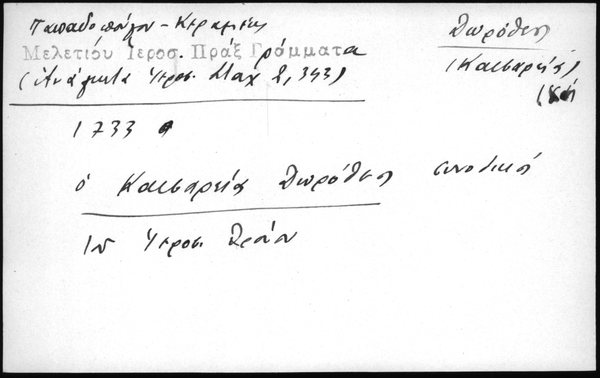 Παπαδοπούλου-Κεραμέως
Μελετίου Ἱεροσ. Πράξ Γράμματα
(Ἀνάλεκτα Ἱεροσ. Σταχ 2, 343)
Δωρόθεος
(Καισαρείας)
1733
ὁ Καισαρείας Δωρόθεος συνοδικός
Ἱεροσ.